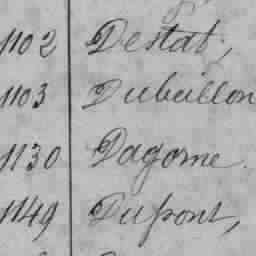 1102 Destab,
1103 Dubuillon
1130 Dagorne.
1149 Dupont,